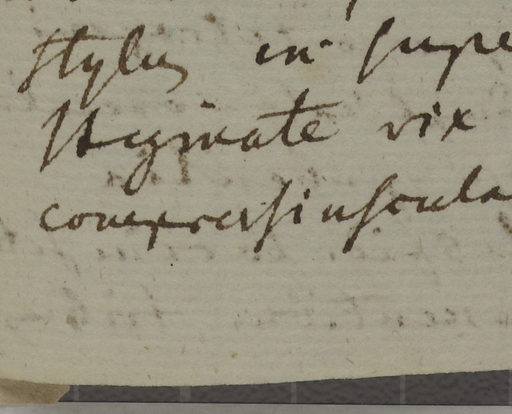 stylus in supe
stigmate vix
compressiuscula